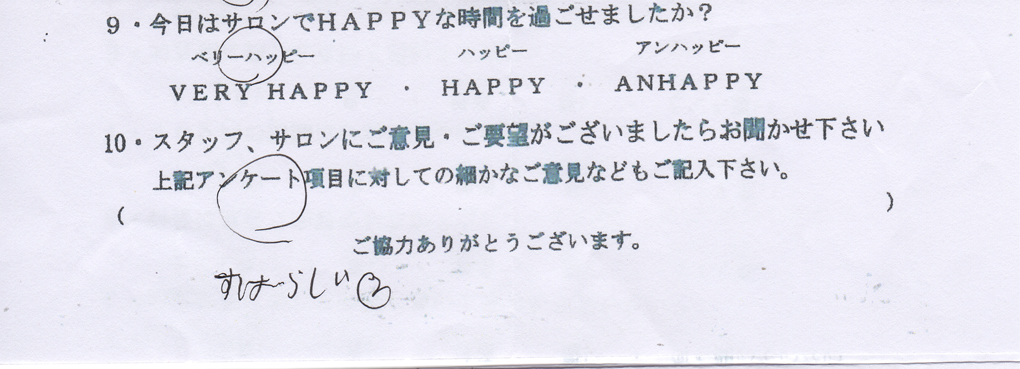 9・今日はサロンでHAPPYな時間を過ごせましたか？
ベリーハッピー ハッピー アンハッピー
VERY HAPPY ・ HAPPY ・ ANHAPPY
10・スタッフ、サロンにご意見・ご要望がございましたらお聞かせ下さい
上記アンケート項目に対しての細かなご意見などもご記入下さい。
( )
ご協力ありがとうございます。
すばらしい